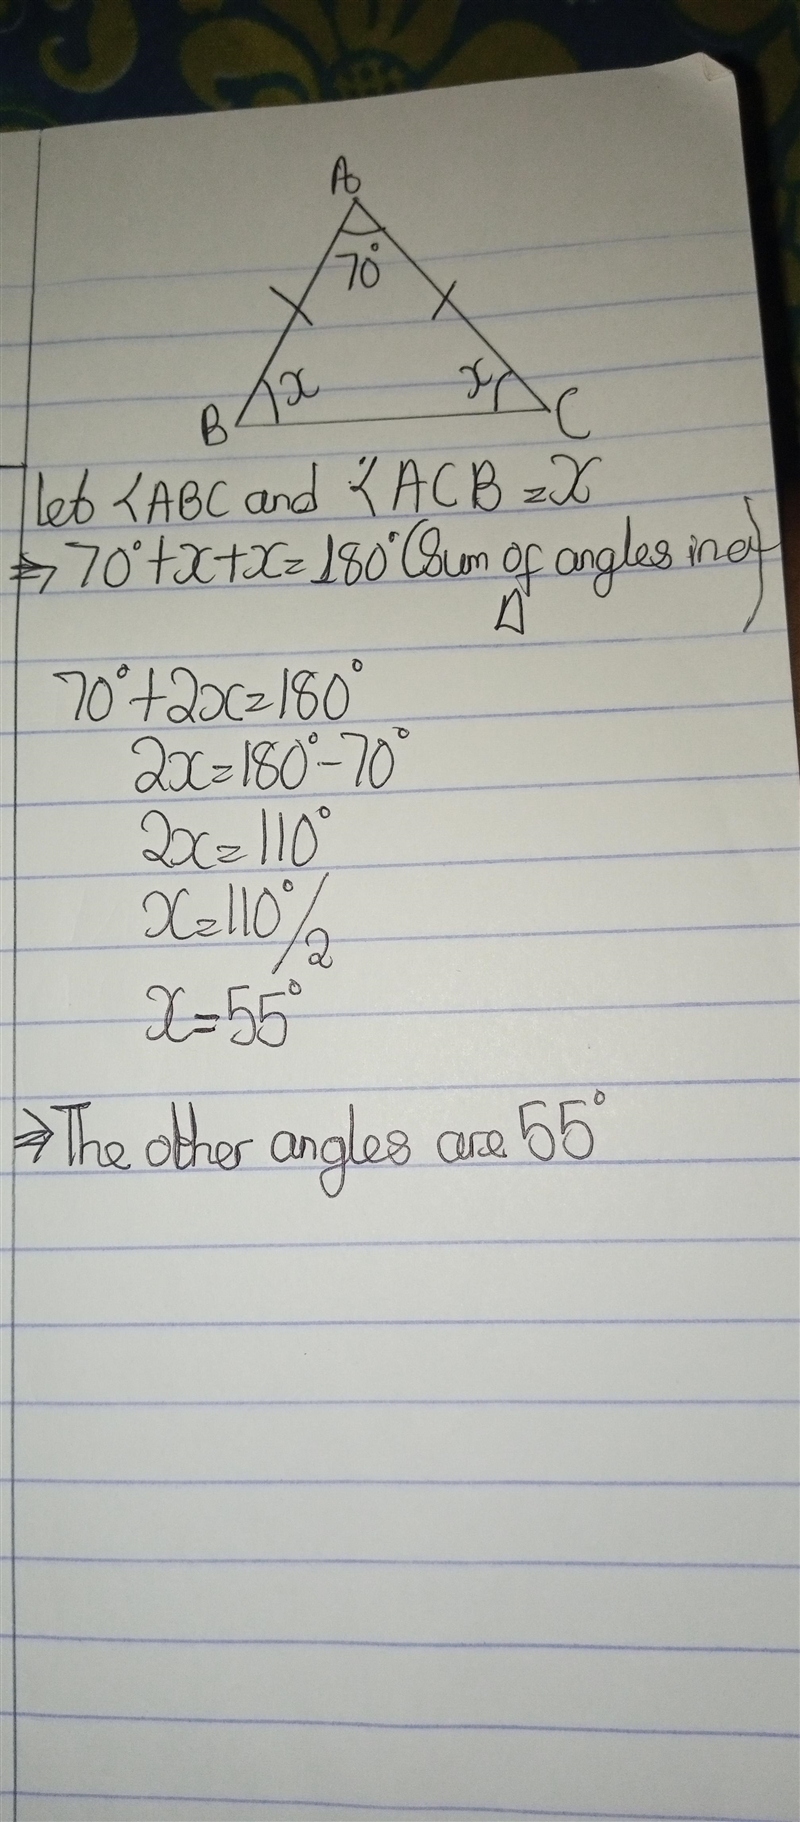 A
70°
x x
B C
let ∢ABC and ∢ACB = x
⇒ 70° + x + x = 180° (Sum of angles in a
Δ)
70° + 2x = 180°
2x = 180° - 70°
2x = 110°
x = 110°/2
x = 55°
⇒ The other angles are 55°